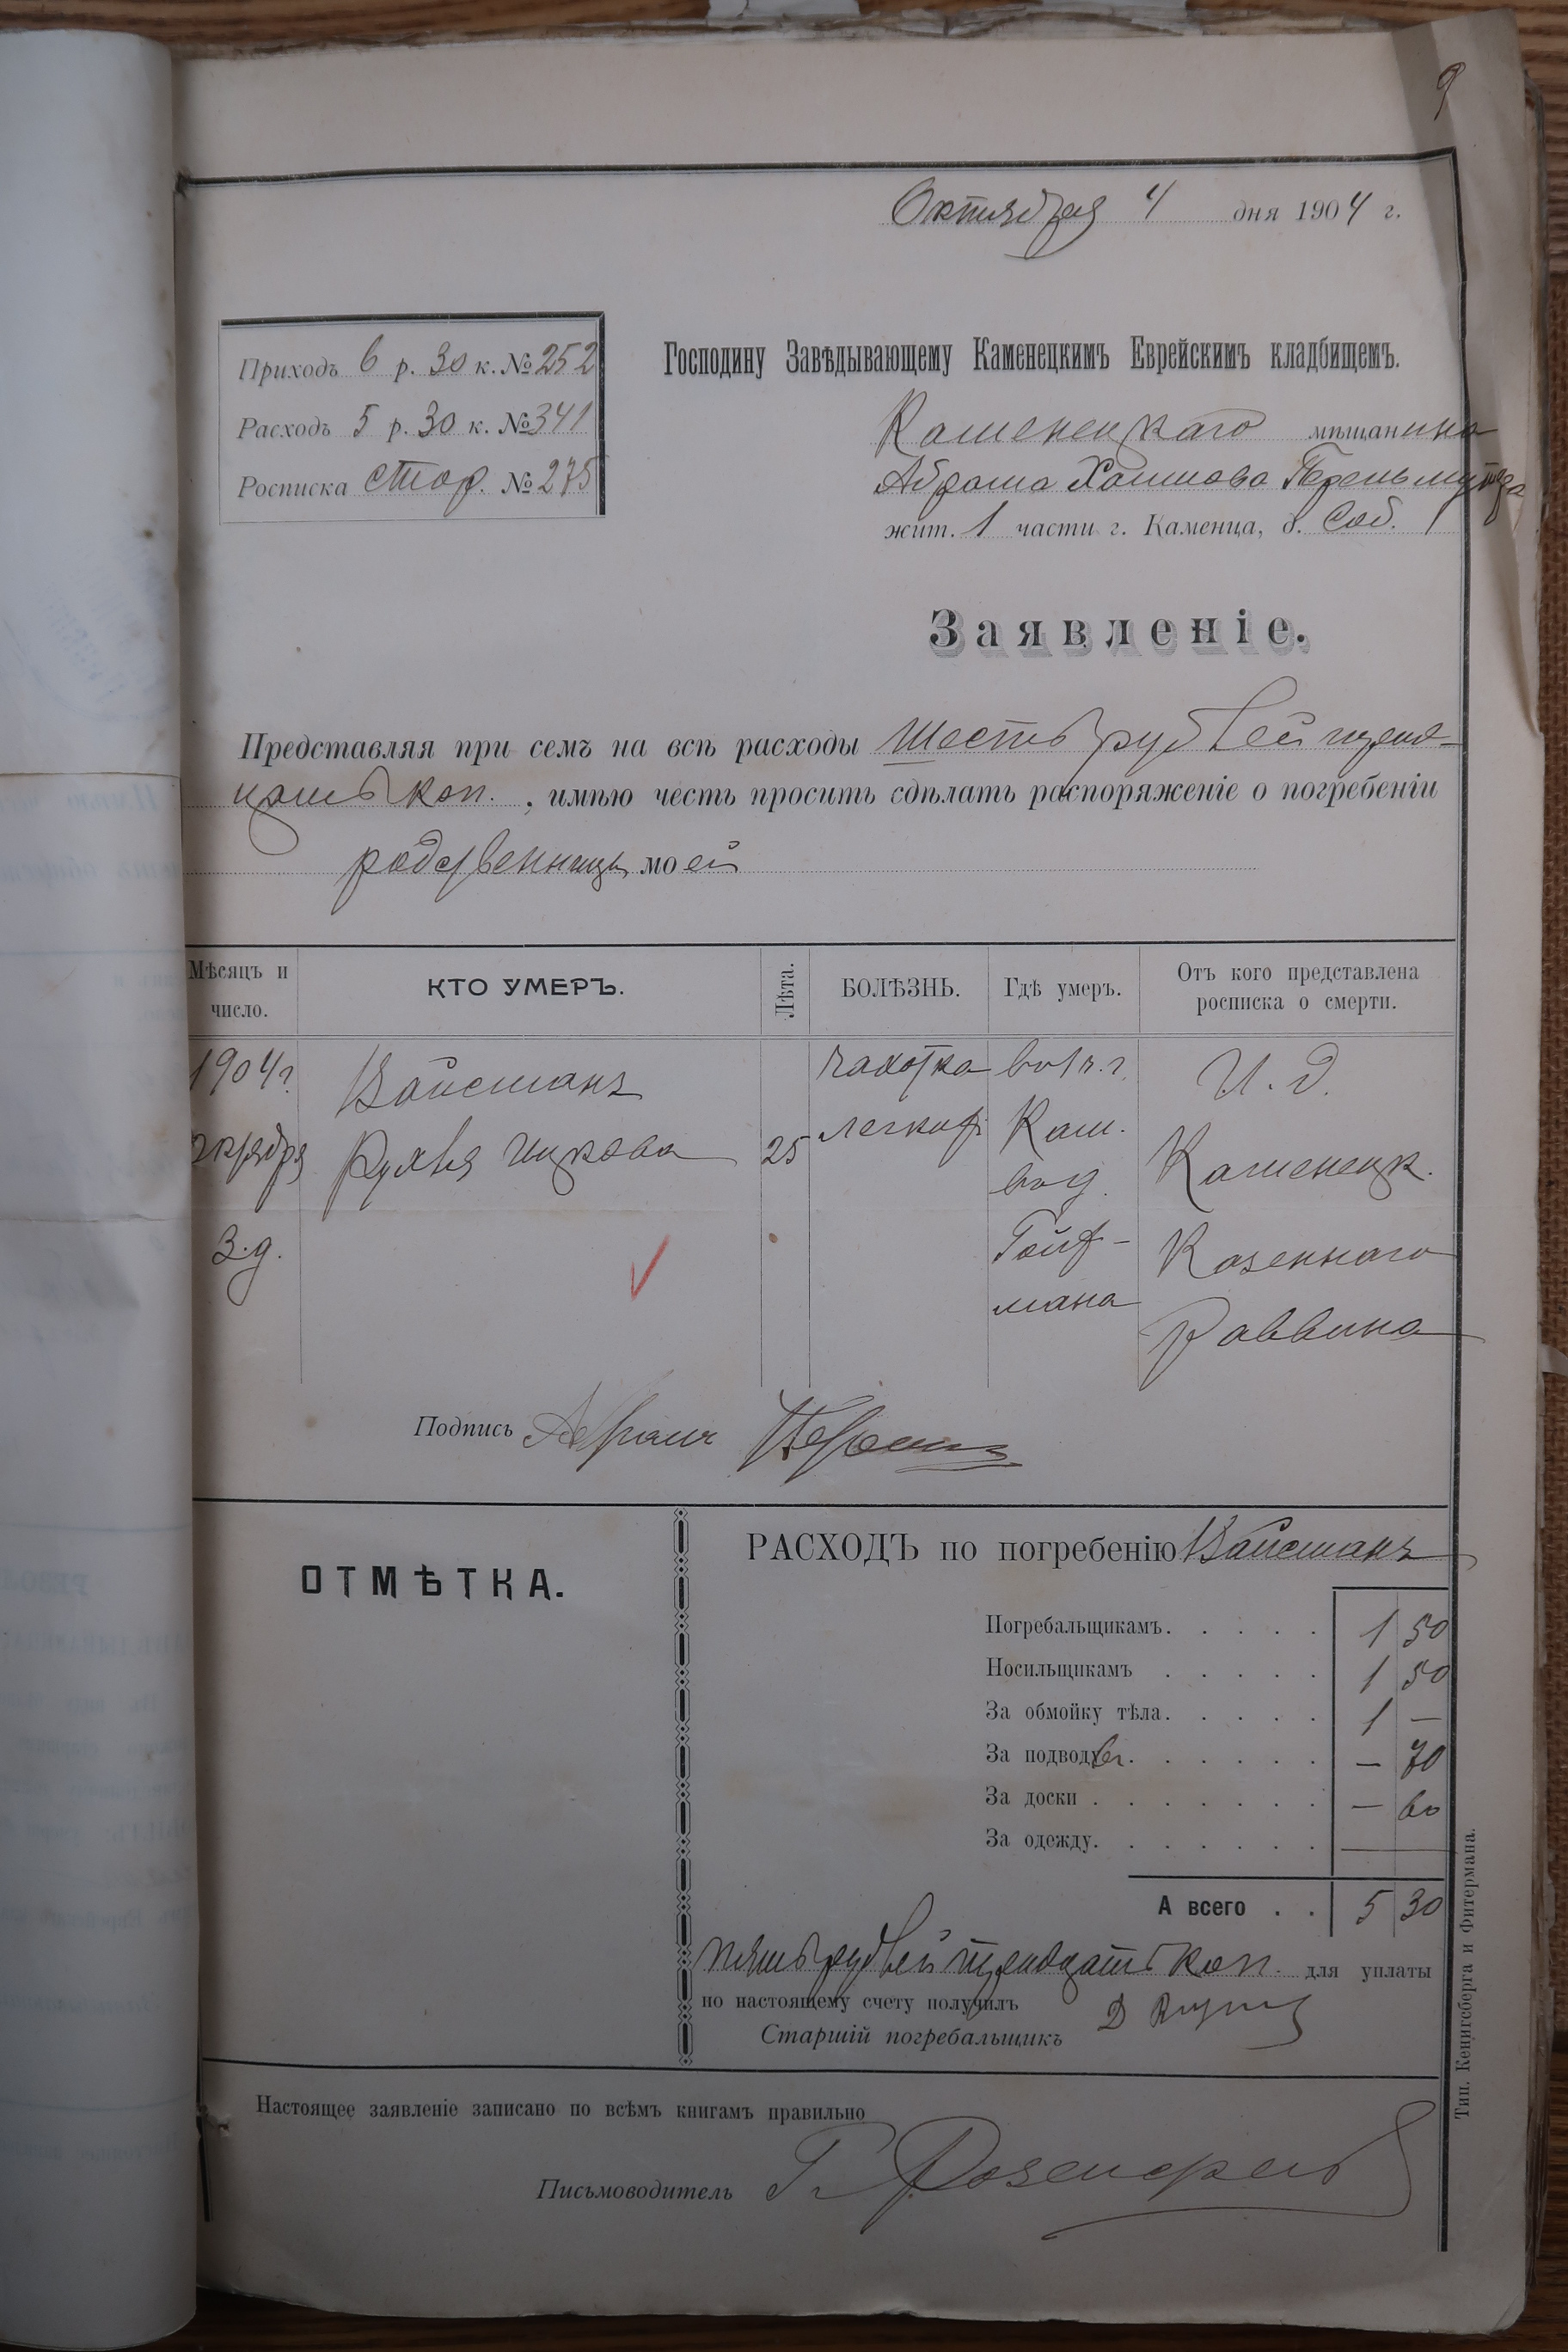 9
Октября 4 дня 1904 г.
Приходъ 6 р. 30 к. № 252
Расходъ 5 р. 30 к. № 341
Росписка стор. № 275
Господину Завѣдывающему Каменецкимъ Еврейскимъ кладбищемъ.
Каменецкаго мѣщанина
Абрама Хаимова Перельмутра
жит. 1 части г. Каменца, д. Соб.
Заявленіе.
Представляя при семъ на всѣ расходы шесть рублей трид-
цать коп., имѣю честь просить сдѣлать распоряженіе о погребеніи
родственницы моей
Мѣсяцъ и число.
КТО УМЕРЪ.
Лѣта.
БОЛѢЗНЬ.
Гдѣ умеръ.
Отъ кого представлена росписка о смерти.
1904 г. Вайсманъ чахотка во 1 ч. г. И. д.
октября Рухля Ицкова 25 легкихъ Кам. Каменецк.
3 д. в д. Гойф- Казеннаго
мана Раввина
Подпись Абрамъ
ОТМѢТКА.
РАСХОДЪ по погребенію Вайсманъ
Погребальщикамъ. . . . . 1 50
Носильщикамъ . . . . . 1 50
За обмойку тѣла. . . . . 1 —
За подводу . . . . . . — 70
За доски . . . . . . . — 60
За одежду. . . . . . . —
А всего . . 5 30
пять рублей тридцать коп. для уплаты
по настоящему счету получилъ
Старшій погребальщикъ Д
Настоящее заявленіе записано по всѣмъ книгамъ правильно
Письмоводитель Г. Розенфельд
Тип. Кенигсберга и Фитермана.